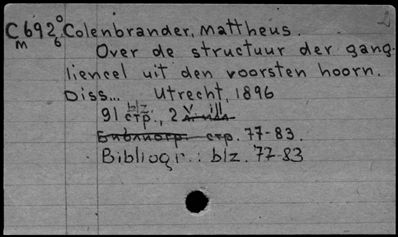 C692⁰ Colenbrander, Mattheus.
m 6
Over de structuur der gang-
liencel uit den voorsten hoorn.
Diss... Utrecht, 1896
blz ill
91 стр., 2 v
Библиогр. стр. 77-83.
Bibliogr.: blz. 77-83